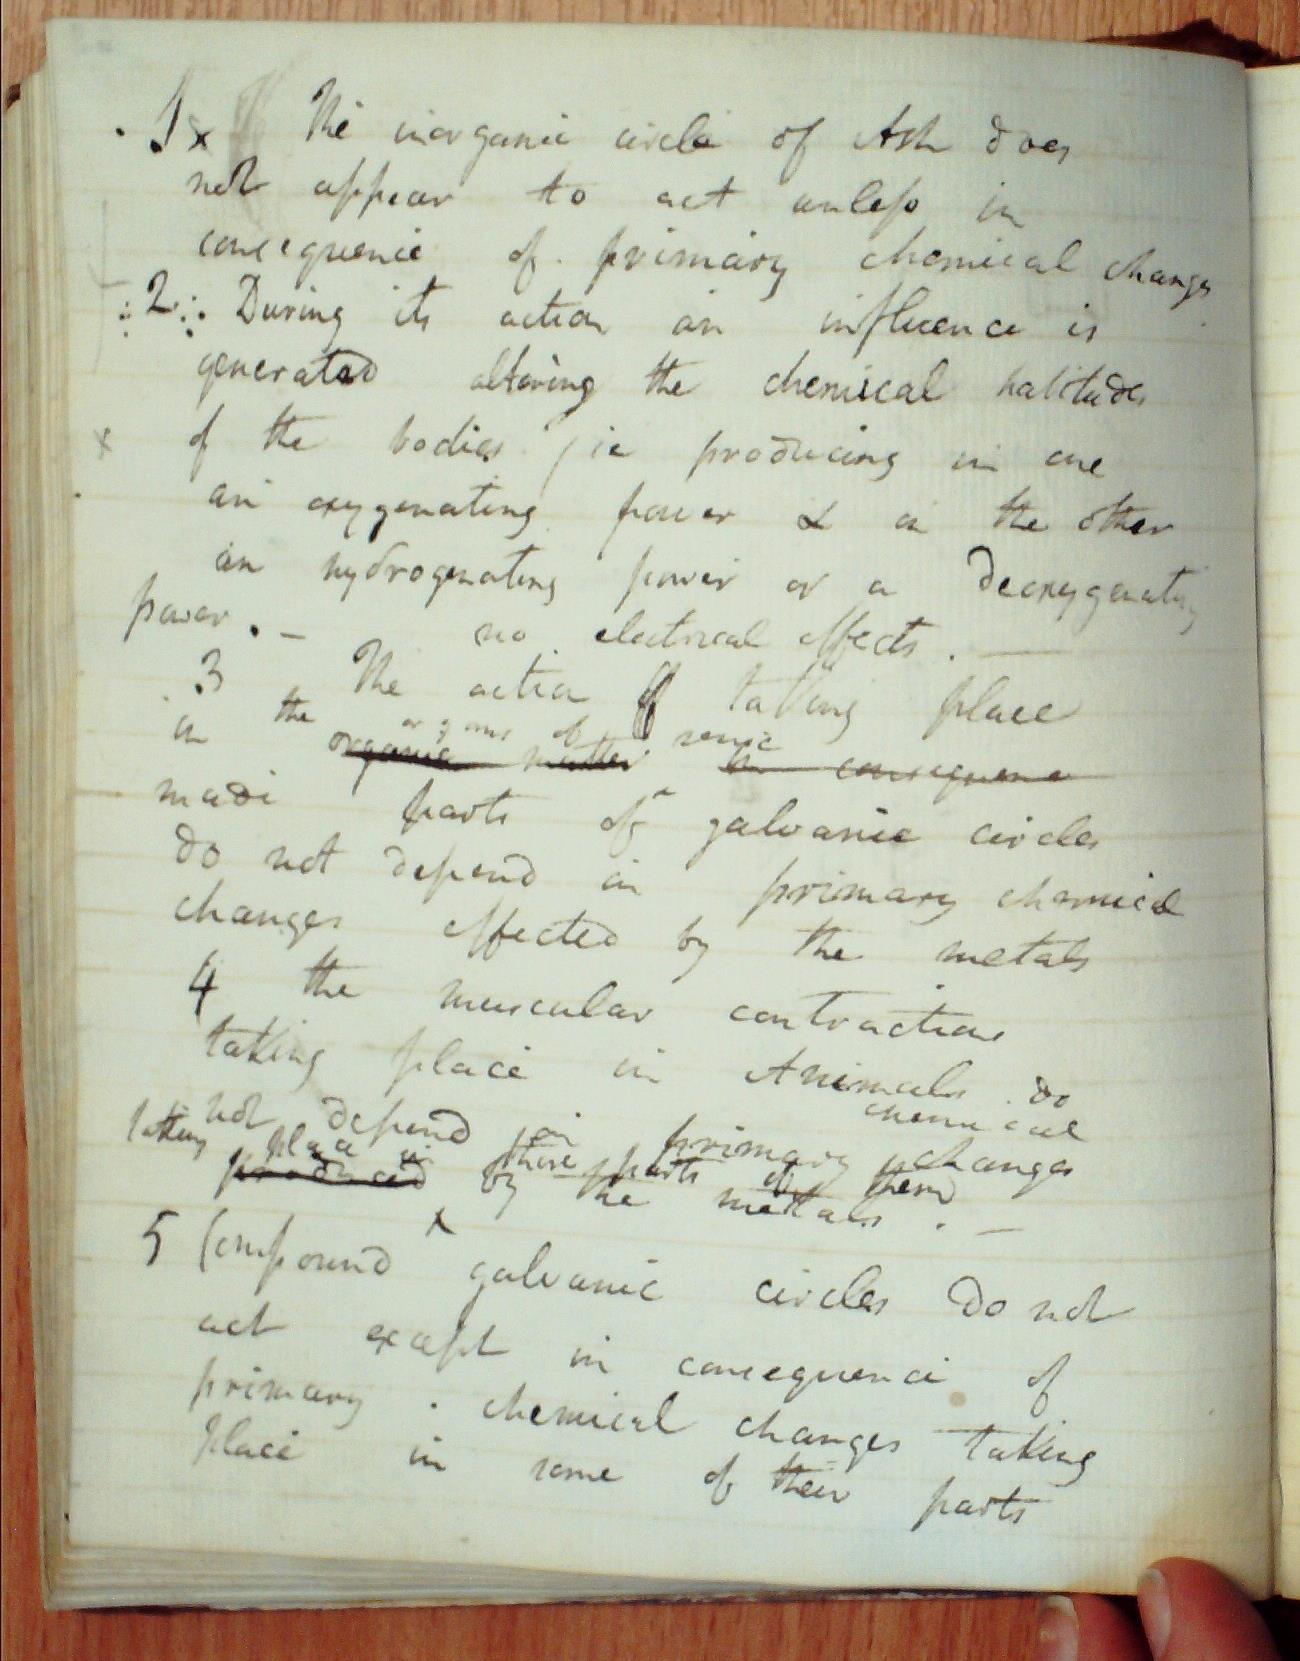 1 x The inorganic circle of Ash does
not appear to act unless in
consequence of primary chemical changes
2 During its action an influence is
generated altering the chemical habitudes
x of the bodies / ie producing in one
an oxygenating power & in the other
an hydrogenating power or a deoxygenating
power. – no electrical effects. —
3 The action of taking place
in the organs of sense
organic matter in consequence
made parts of galvanic circles
do not depend on primary chemical
changes effected by the metals
4 the muscular contractions
taking place in Animals do
chemical
not depend on primary changes
taking place in those parts of them
produced by the metals. —
5 Compound galvanic circles do not
act except in consequence of
primary . chemical changes taking
place in some of their parts